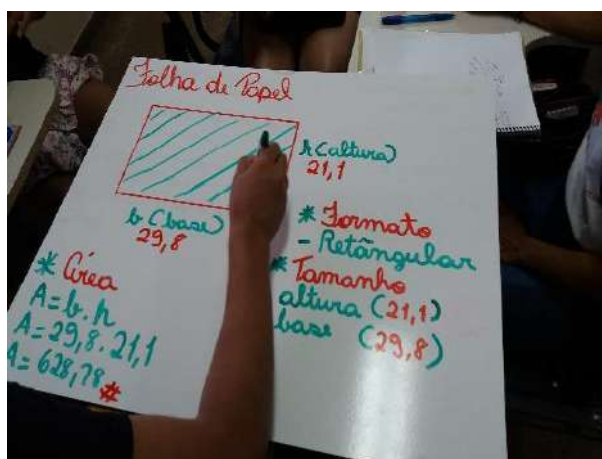 Folha de Papel
h (altura)
21,1
b (base)
29,8
* Formato
- Retângular
* Tamanho
altura (21,1)
base (29,8)
* Área
A = b . h
A = 29,8 . 21,1
A = 628,78 #